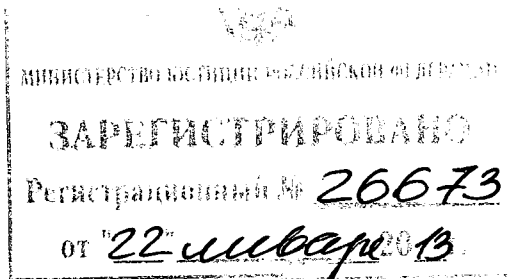 МИНИСТЕРСТВО ЮСТИЦИИ РОССИЙСКОЙ ФЕДЕРАЦИИ
ЗАРЕГИСТРИРОВАНО
Регистрационный № 26673
от "22" января 2013